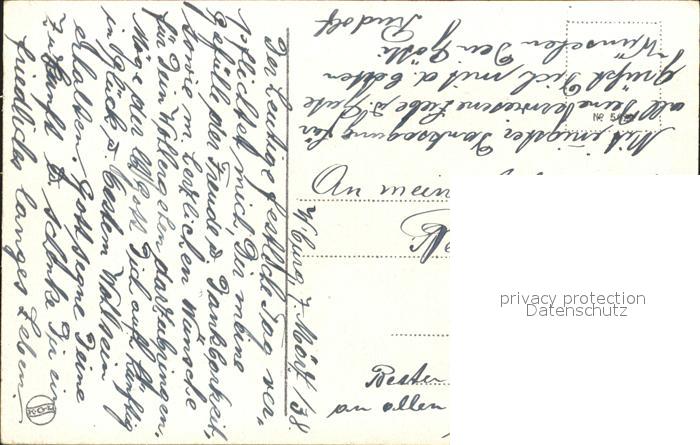 W'burg, 7. März 38.
Der heutige festlich Tag ver-
pflichtet mich, Dir meine
Gefühle der Freude & Dankbarkeit,
sowie m. herzlichen Wünsche
für Dein Wohlergehen darzubringen.
Möge der Gott Dich auch künftig
in Glück & bestem Wohlsein
erhalten. Gott segne Deine
Zukunft & schenke Dir ein
friedliches langes Leben.
Mit innigster Danksagung für
all Deine erwiesene Liebe & Güte
grüßt Dich mit d. besten
Wünschen Dein Gotti
Rudolf
No 5
An mein
Besten
an allen
privacy protection
Datenschutz